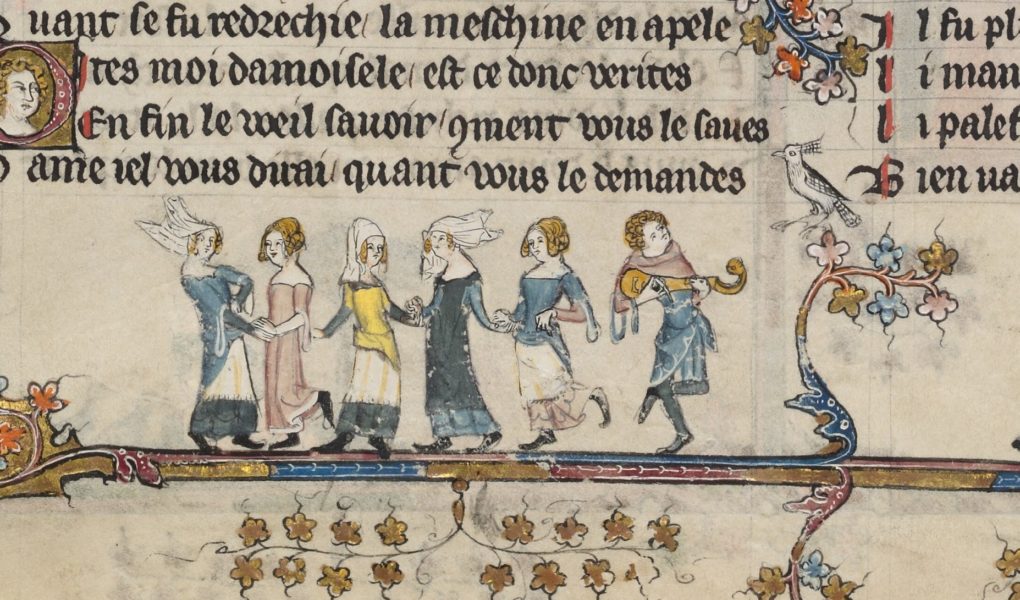 uant se fu redrechie / la meschine en apele
ites moi damoisele / est ce donc verites
En fin le weil sauoir / ꝯment vous le saues
ame iel vous dirai / quant vous le demandes
l fu pl
i man
i palef
Bien ua